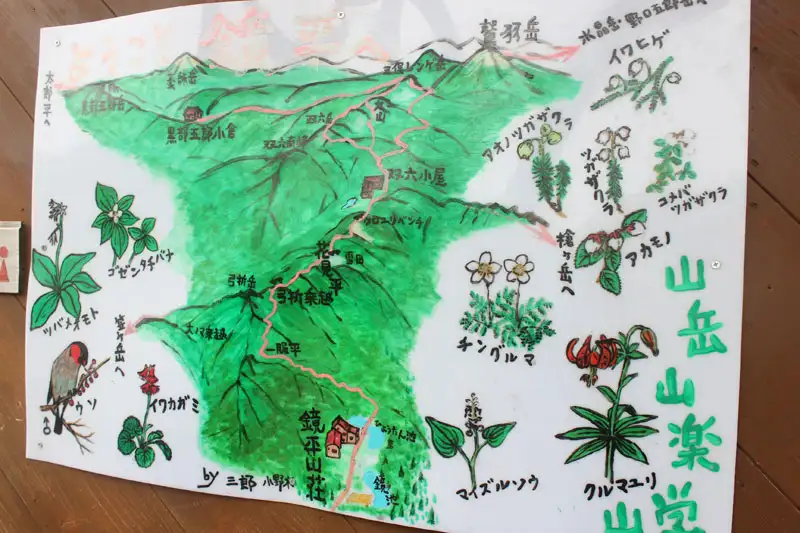 鷲羽岳
水晶岳・野口五郎岳へ
イワヒゲ
太郎平へ
三俣レンゲ岳
丸山
黒部五郎小舎
双六岳
双六小屋
アオノツガザクラ
ツガザクラ
コメバ
ツガザクラ
クロユリベンチ
アカモノ
槍ヶ岳へ
花見平
雪田
ゴゼンタチバナ
弓折岳
弓折乗越
ツバメオモト
チングルマ
大ノマ乗越
笠ヶ岳へ
一服平
ウソ
♂
イワカガミ
鏡平山荘
ひょうたん池
鏡池
マイズルソウ
クルマユリ
by 三郎 小野木
山岳
山楽
山学